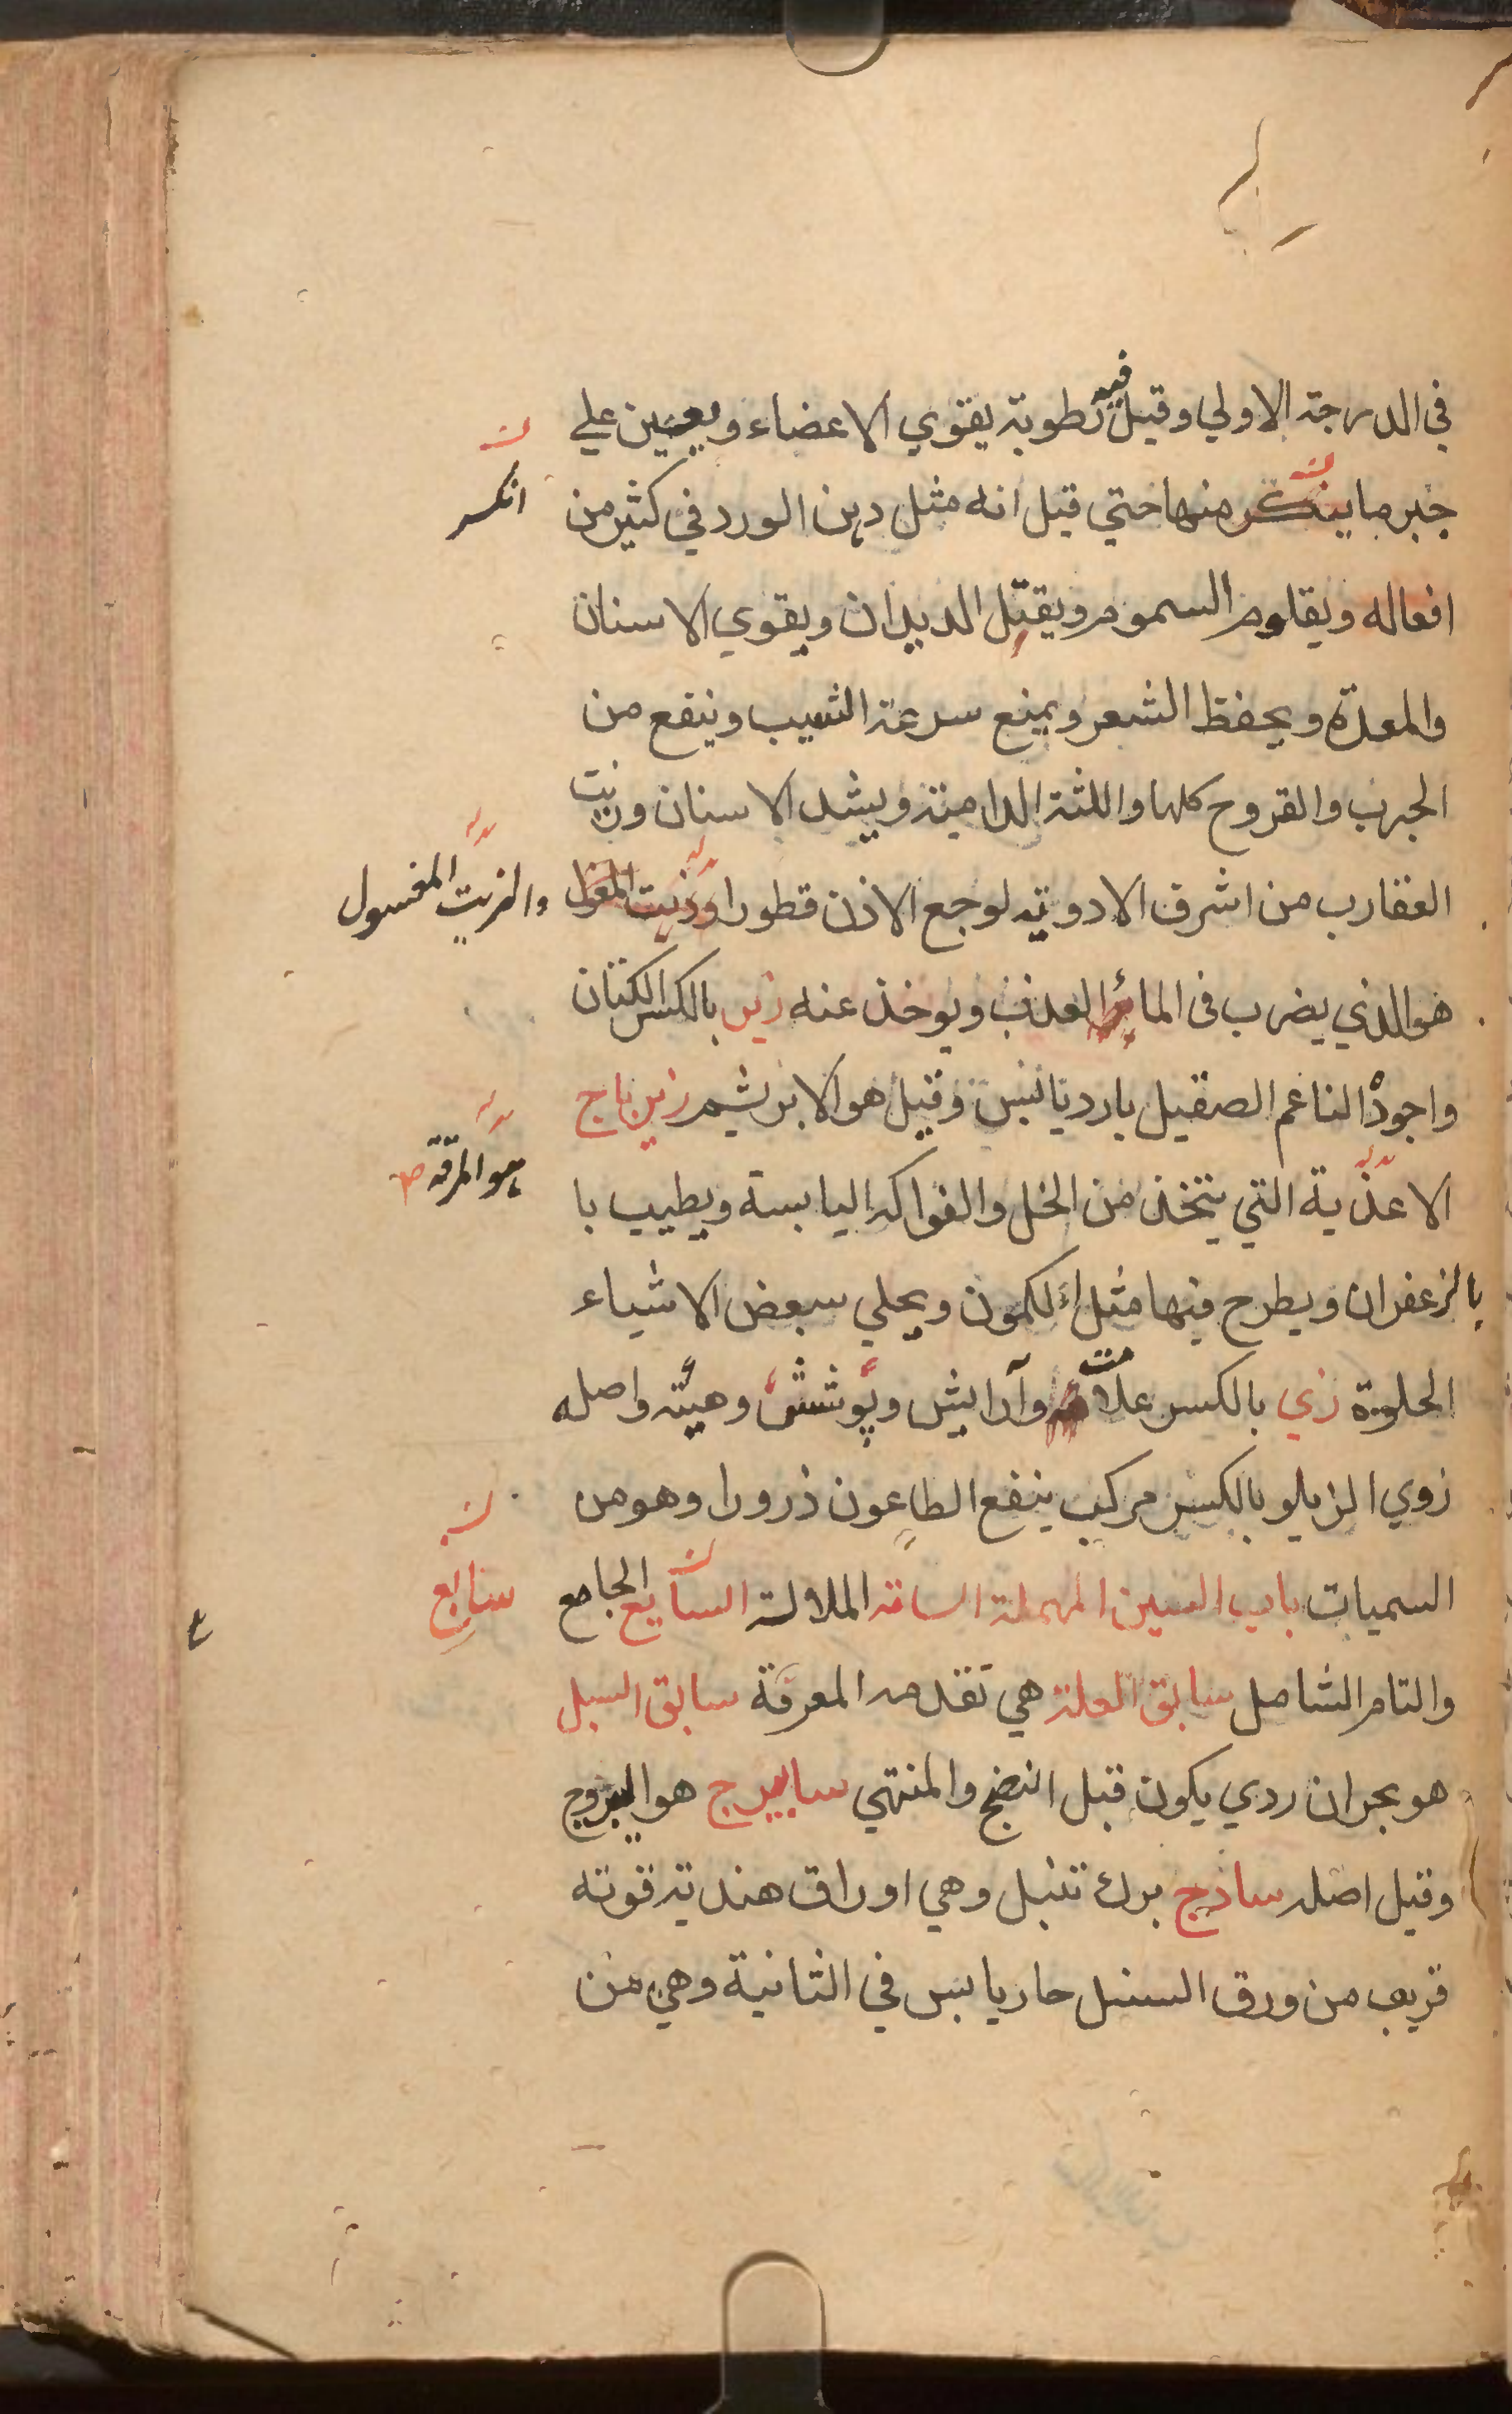 في الدرجة الاولي وقيل فيه رطوبة يقوي الاعضاء ويعين علي
جبر ما ينكسر منها حتي قيل انه مثل دهن الورد في كثير من
انكسر
افعاله ويقاوم السموم ويقتل الديدان ويقوي الاسنان
والمعدة ويحفظ الشعر ويمنع سرعة الشيب وينفع من
الجرب والقروح كلها واللثة الدامية ويشد الاسنان وزيت
العقارب من اشرف الادوية لوجع الاذن قطورا وزيت
والزيت المغسول
هو الذي يضرب في الماء العذب ويوخذ عنه زير بالكسر الكتان
واجوده الناعم الصقيل بارد يابس وقيل هو الابريشم زيرباج
هو المرقة
الاغذية التي يتخذ من الخل والفواكه اليابسة ويطيب با
بالزعفران ويطرح فيها مثل الكمون ويحلي ببعض الاشياء
الحلوة زي بالكسر علامت وآرايش وپوشش وهيئة واصله
زوي الزيلو بالكسر مركب ينفع الطاعون ذرورا وهو من
السميات باب السين المهملة السامة الملالة السابغ الجامع
سابغ
والتام الشامل سابق العلة هي تقدمه المعرفة سابق السبل
هو بحران ردي يكون قبل النضج والمنتهي سابيرج هو اليبروج
وقيل اصله ساذج برك تنبل وهي اوراق هندية قوته
قريب من ورق السنبل حار يابس في الثانية وهي من